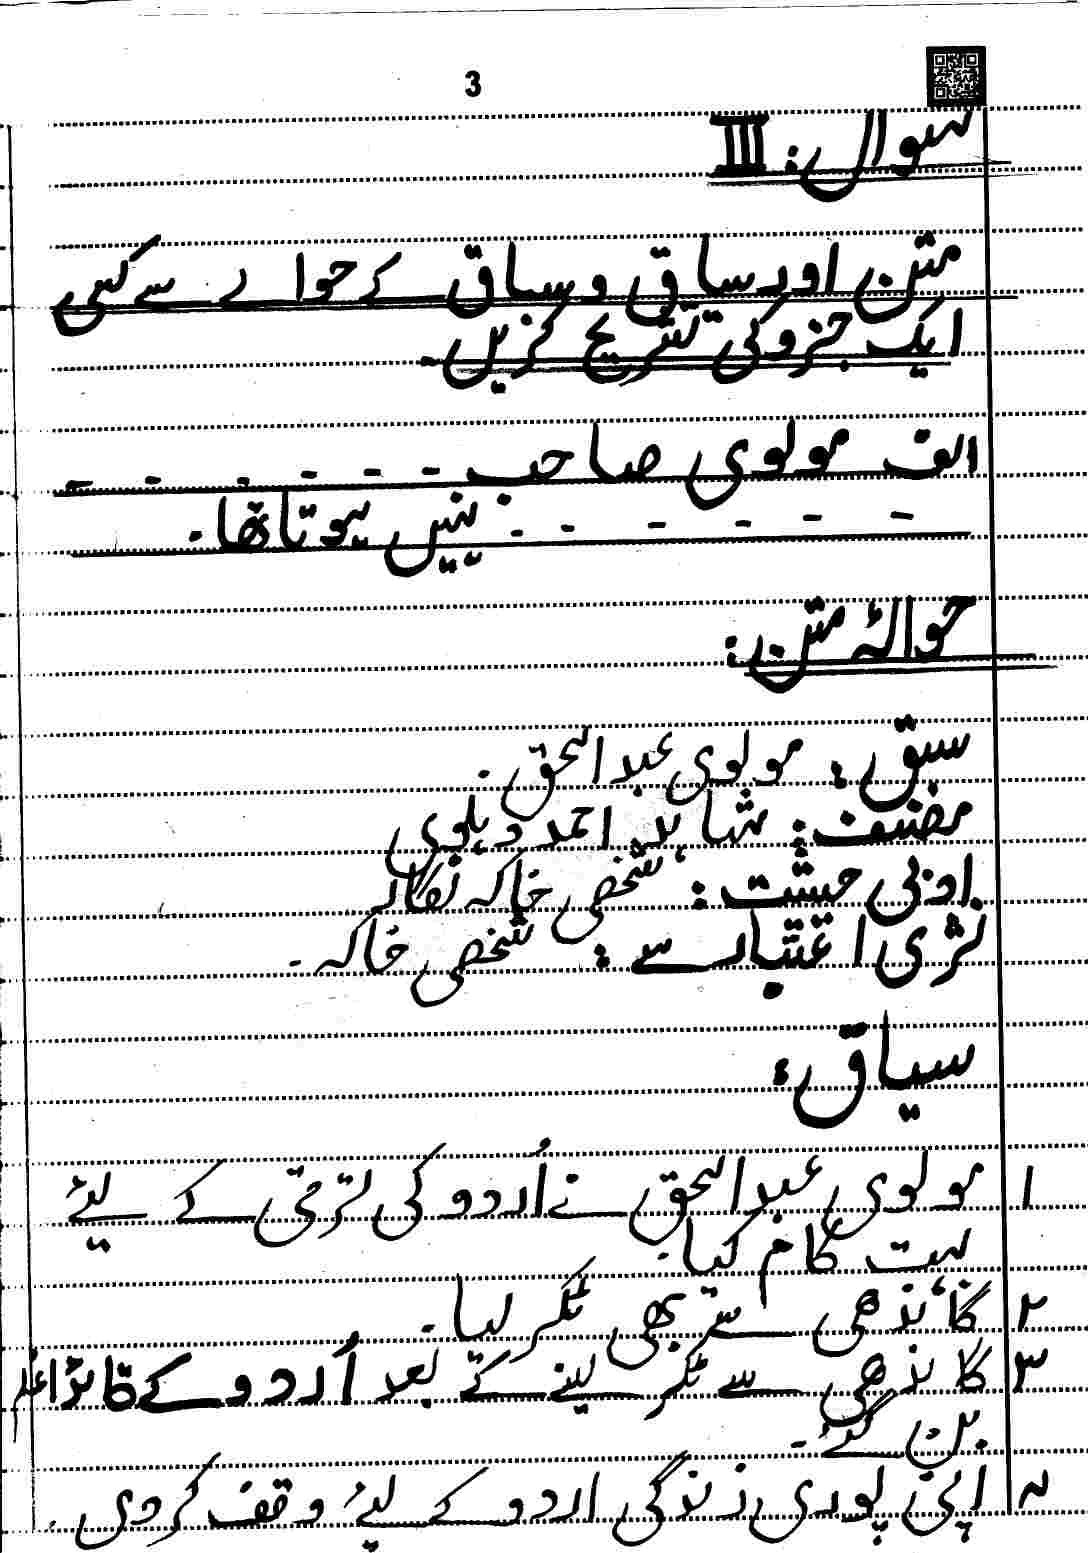 3
سوال: III
متن اور سیاق و سباق کے حوالے سے کسی
ایک جزو کی تشریح کریں۔
الف مولوی صاحب - - - - - -
- - - - - - نہیں ہوتا تھا۔
حوالۂ متن:
سبق: مولوی عبدالحق۔
مصنف: شاہد احمد دہلوی
ادبی حیثیت: شخصی خاکہ نگار
نثری اعتبار سے: شخصی خاکہ۔
سیاق:
۱ مولوی عبدالحق نے اُردو کی ترقی کے لیئے
بہت کام کیا۔
۲ گاندھی سے بھی ٹکر لیا۔
۳ گاندھی سے ٹکر لینے کے بعد اُردو کے قائداعظم
بن گئے۔
۴ اپنی پوری زندگی اردو کے لیئے وقف کردی۔